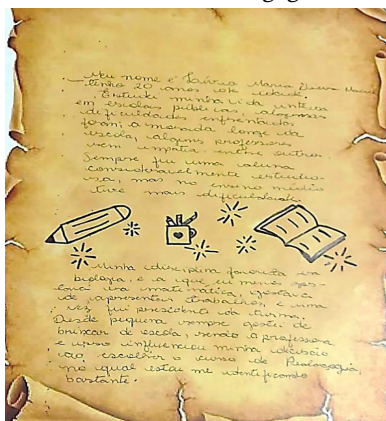 Meu nome é Maria
tenho 20 anos de idade.
Estudei minha vida inteira
em escolas públicas algumas
dificuldades enfrentadas
foram, a morada longe da
escola, alguns professores
sem empatia entre outros.
Sempre fui uma aluna
consideravelmente estudio-
sa mas no ensino médio
tive mais dificuldade.
Minha disciplina favorita era
biologia, e a que eu menos gos-
tava era matemática, gostava
de apresentar trabalhos, e uma
vez fui presidente da turma.
Desde pequena sempre gostei de
brincar de escola, sendo a professora
e isso influenciou minha decisão
ao escolher o curso de Pedagogia,
no qual estou me identificando
bastante.